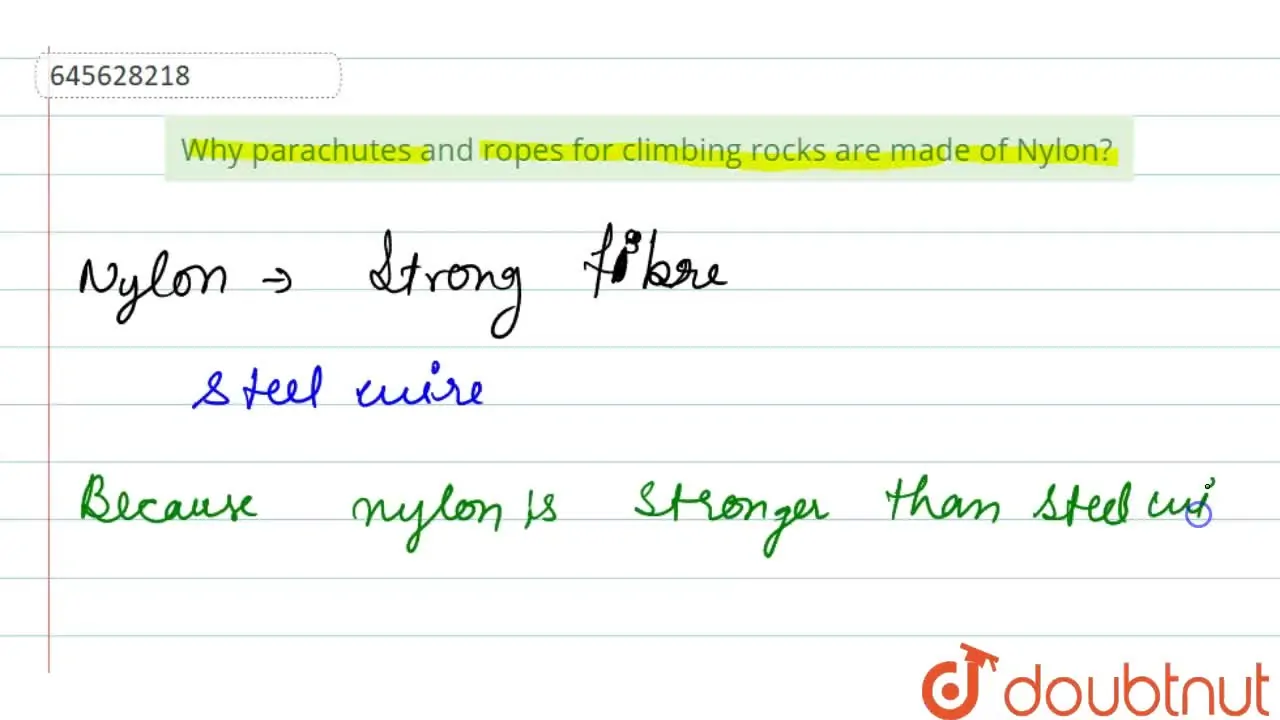 645628218
Why parachutes and ropes for climbing rocks are made of Nylon?
Nylon → Strong fibre
steel wire
Because nylon is stronger than steel wi
doubtnut